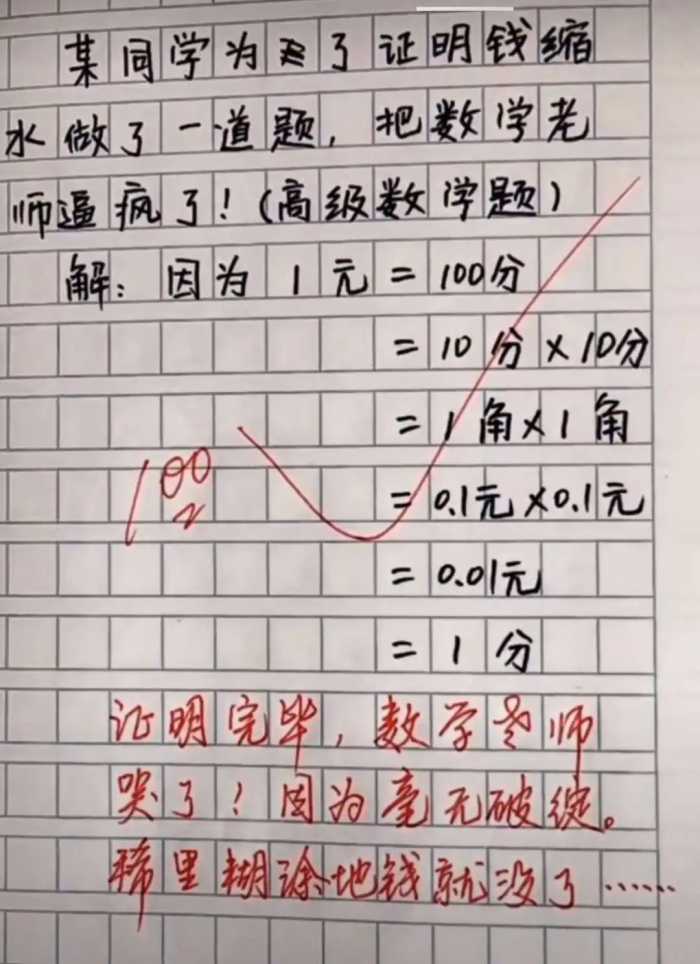 某同学为了证明钱缩
水做了一道题，把数学老
师逼疯了！(高级数学题)
解：因为 1 元 = 100分
= 10 分 × 10分
= 1 角 × 1 角
= 0.1元 × 0.1元
100
= 0.01元
= 1 分
证明完毕，数学老师
哭了！因为毫无破绽。
稀里糊涂地钱就没了……